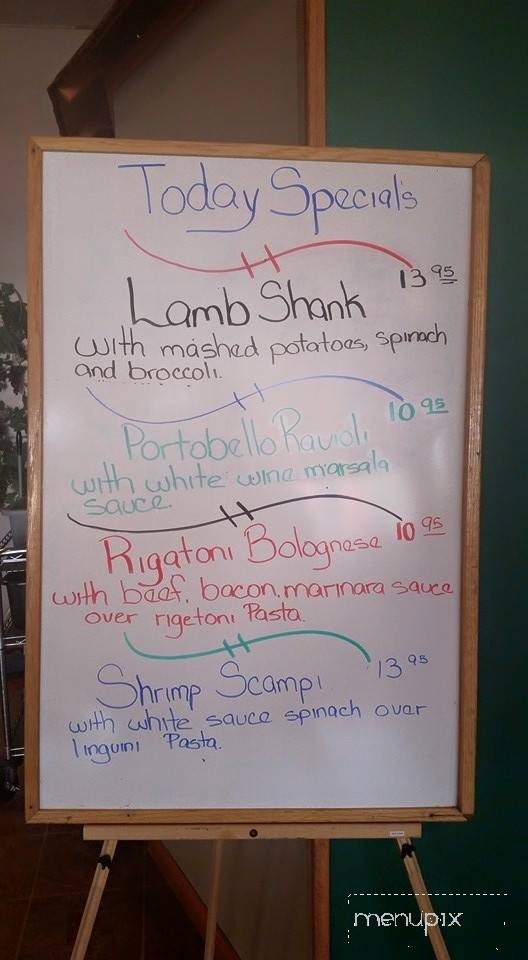 Today Special's
13 95
Lamb Shank
with mashed potatoes, spinach
and broccoli.
10 95
Portobello Ravioli
with white wine marsala
sauce.
10 95
Rigatoni Bolognese
with beef, bacon, marinara sauce
over rigetoni Pasta.
13 95
Shrimp Scampi
with white sauce spinach over
linguini Pasta.
menupix